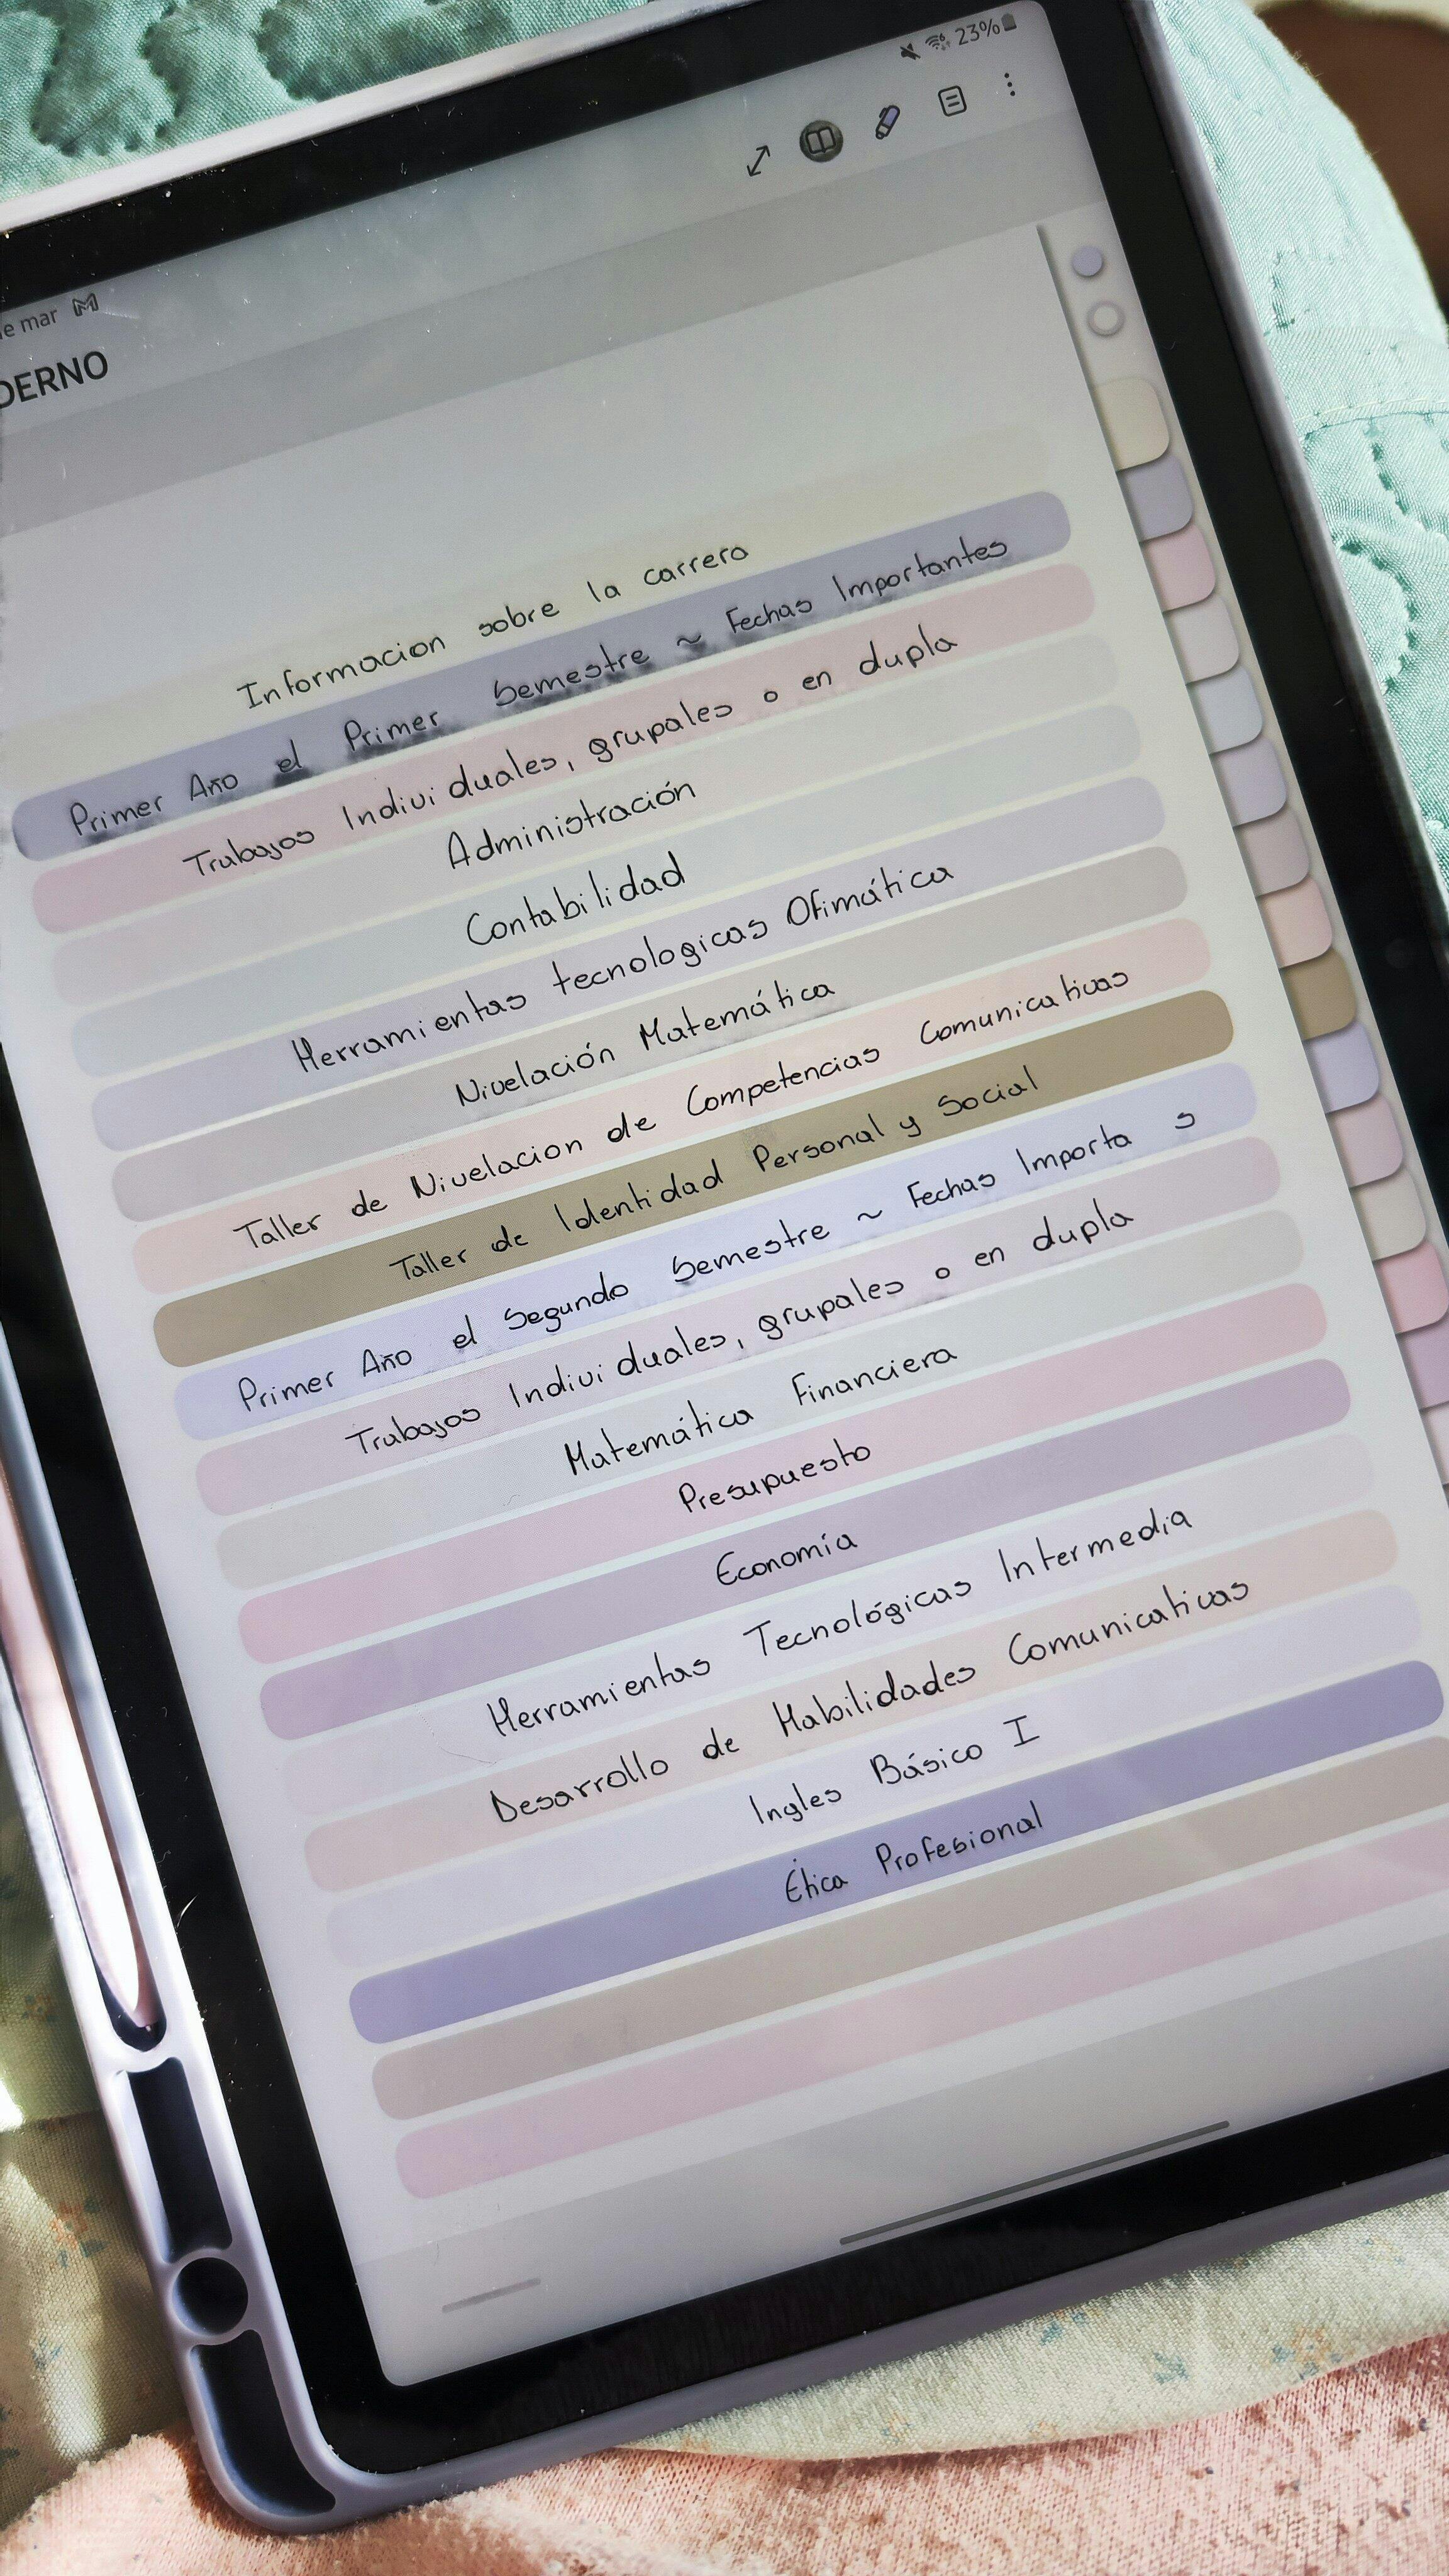 23%
e mar
DERNO
Informacion sobre la carrera
Primer Año el Primer Semestre ~ Fechas Importantes
Trabajos Individuales, grupales o en dupla
Administración
Contabilidad
Herramientas tecnologicas Ofimática
Nivelación Matemática
Taller de Nivelacion de Competencias Comunicativas
Taller de Identidad Personal y Social
Primer Año el Segundo Semestre ~ Fechas Importa s
Trabajos Individuales, grupales o en dupla
Matemática Financiera
Presupuesto
Economía
Herramientas Tecnológicas Intermedia
Desarrollo de Habilidades Comunicativas
Ingles Básico I
Ética Profesional